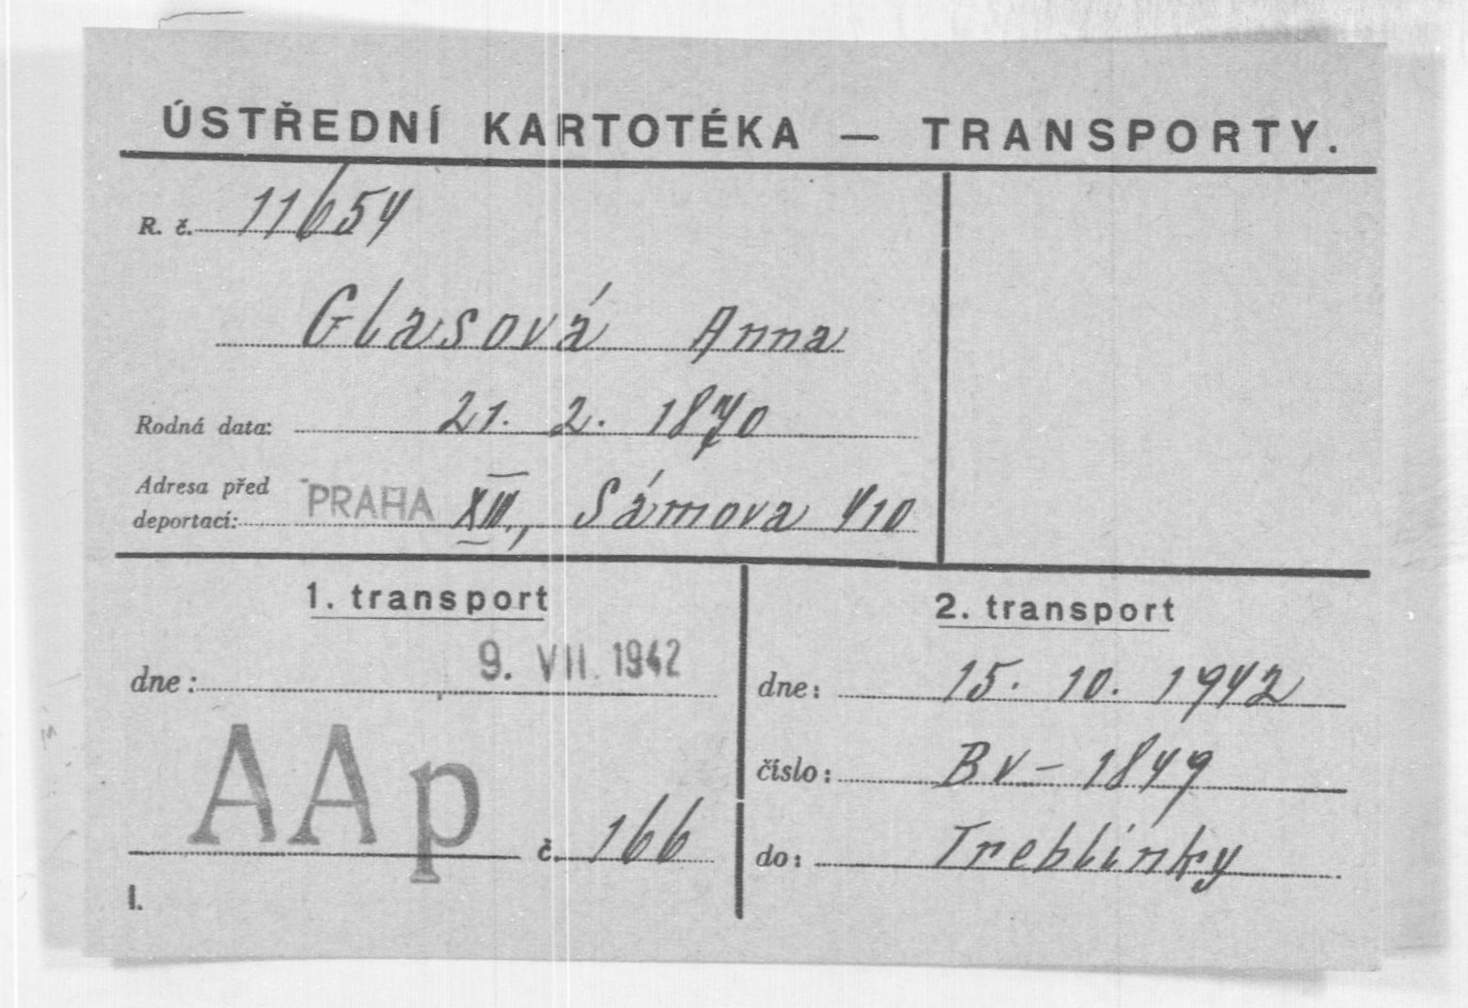 ÚSTŘEDNÍ KARTOTÉKA — TRANSPORTY.
R. č. 11654
Glasová Anna
Rodná data: 21. 2. 1870
Adresa před
deportací: PRAHA XIII., Sámova 410
1. transport
dne: 9. VII. 1942
AAp č. 166
I.
2. transport
dne: 15. 10. 1942
číslo: Bv - 1849
do: Treblinky